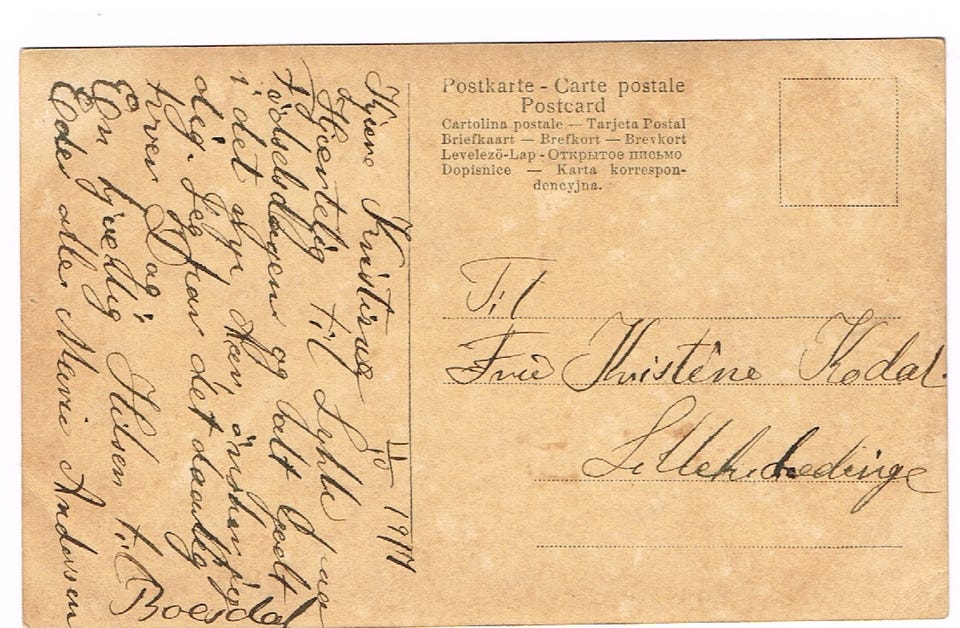 Kjære Kristine 1/10 1917
Hjærtelig til Lykke paa
Fødselsdagen og alt Godt
i det nye Aar ønsker jeg
dig. Jeg har det daarlig
hver Dag.
En kjærlig Hilsen til
Eder alle Marie Andersen
Boesdal
Postkarte - Carte postale
Postcard
Cartolina postale — Tarjeta Postal
Briefkaart — Brefkort — Brevkort
Levelező-Lap - Открытое письмо
Dopisnice — Karta korrespon-
dencyjna.
Til
Frue Kristine Kodal.
Lilleheddinge